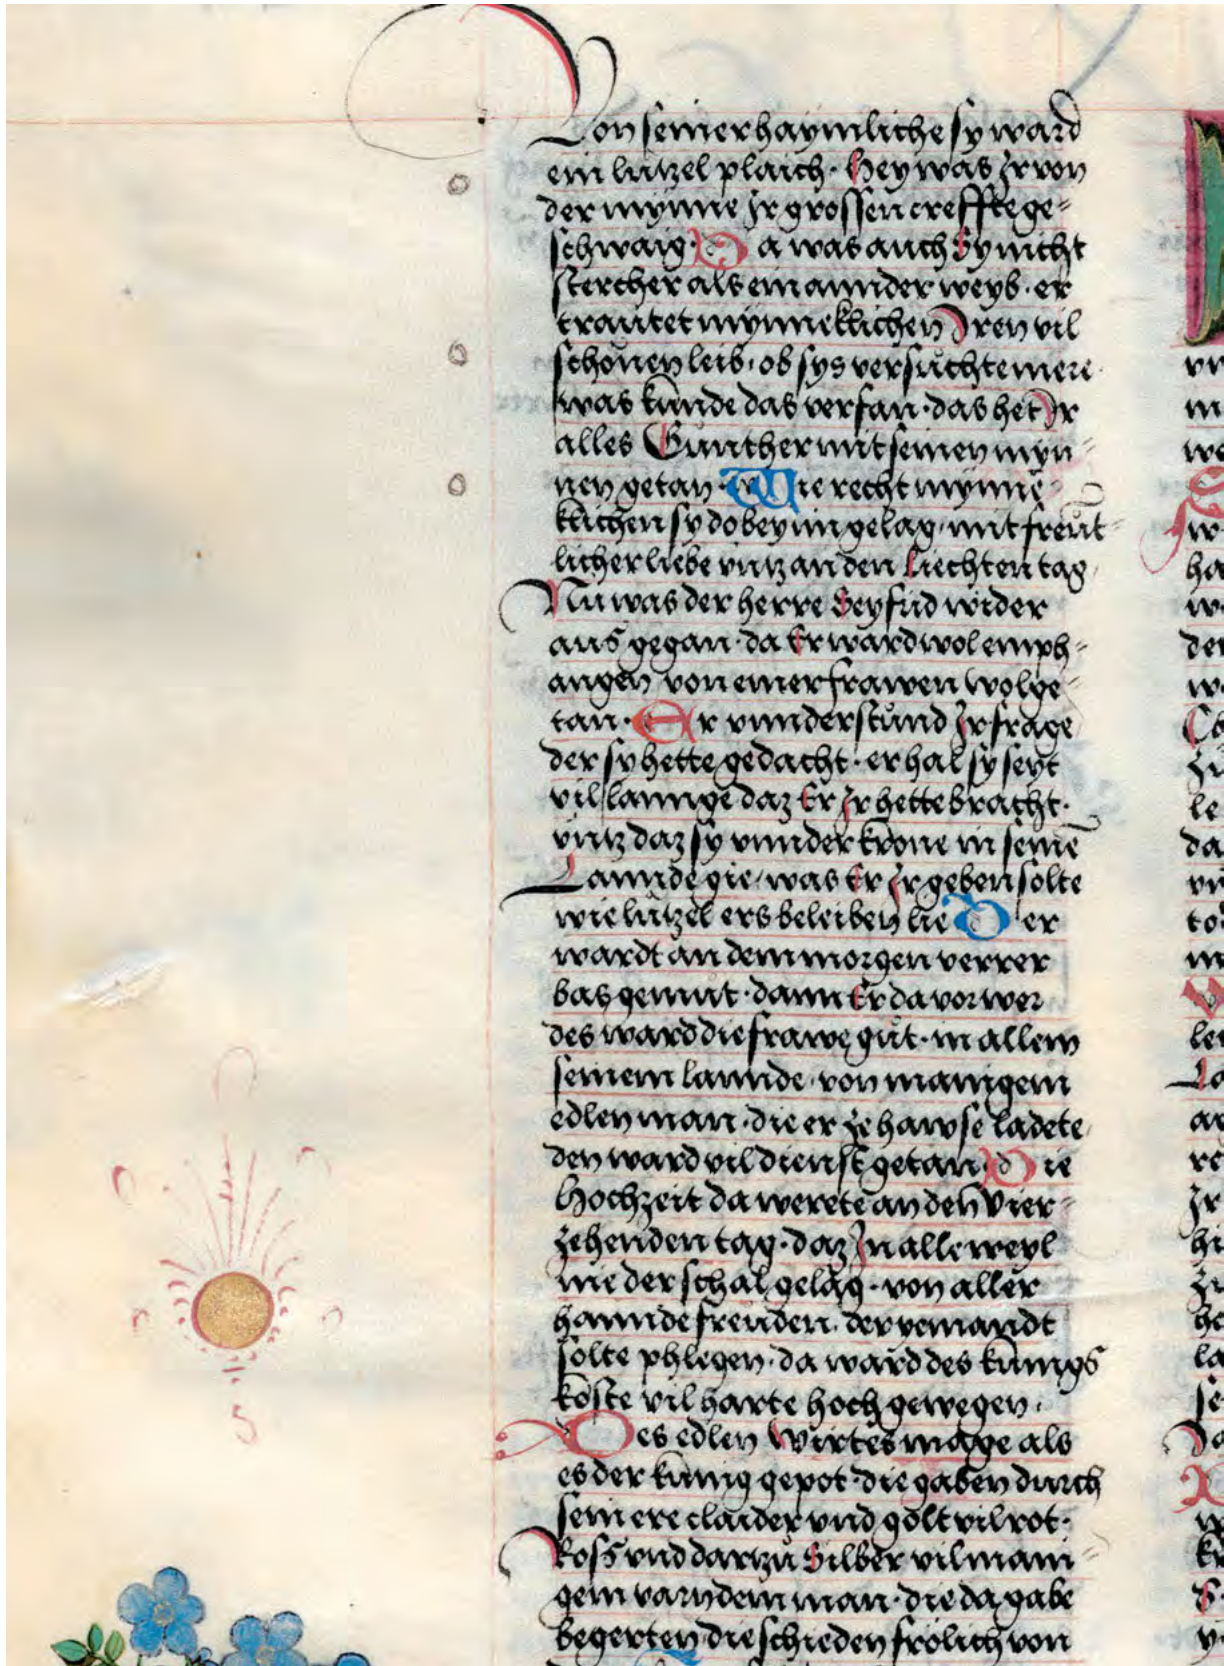 Von seiner haymliche sy ward
ein lützel plaich · Hey was Jr von
der mynne jr grossen creffte ge⸗
schwaig · Da was auch Sy nicht
stercher als ein annder weyb · er
trautet mynneklichen Jren vil
schönen leib · ob sys versůchte mere
was kunde das verfan · das het Jr
alles Gunther mit seinen myn⸗
nen getan · Wie recht mynne⸗
klichen sy do bey im gelag · mit freůnt⸗
licher liebe vntz an den Liechten tag
Nu was der herre Seyfrid wider
aus gegan · da Er ward wol emph⸗
angen von einer frawen wolge⸗
tan · Er vnnderstůnd Jr frage
der sy hette gedacht · er hal sy seyt
vil lannge daz Er Jr hette bracht ·
vntz daz sy vnnder krone in seinē
Lannde gie · was Er Jr geben solte
wie lützel ers beleiben lie Der
wardt an dem morgen verrer
bas gemůt · dann Er da vor wer
des ward die frawe gůt · in allem
seinem lannde · von manigem
edlen man · die er ze hawse ladete
den ward vil dienst getan · Die
Hochzeit da werete an den Vier⸗
zehenden tag · daz Jn alle weyl
nie der schal gelag · von aller
hannde freuden · der yemandt
solte phlegen · da ward des kunigs
koste vil harte hoch gewegen ·
Des edlen Wirtes mage als
es der kunig gepot · die gaben durch
sein ere claider vnd golt vil rot ·
Ross vnd dartzů Silber vil mani⸗
gem varndem man · die da gabe
begerten die schieden frölich von